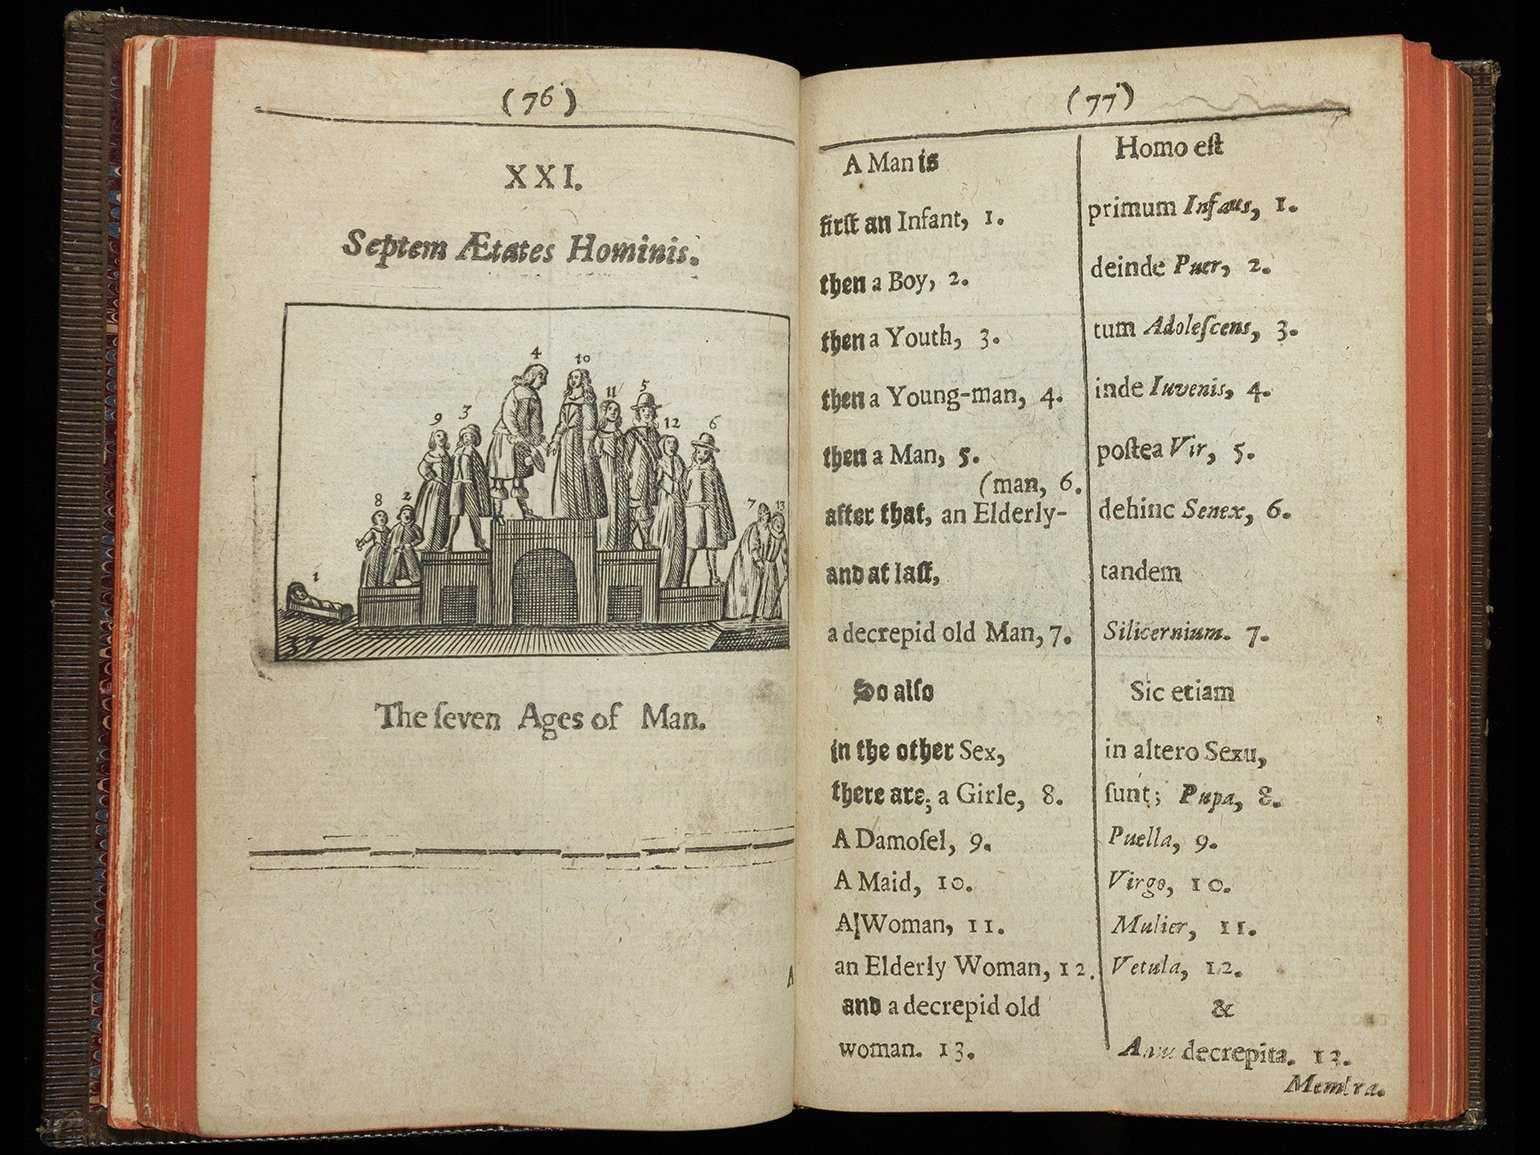 (76)
XXI.
Septem Ætates Hominis.
4
10
11
5
9
3
12
6
8
2
7
13
1
37
The ſeven Ages of Man.
A
(77)
A Man is
firſt an Infant, 1.
then a Boy, 2.
then a Youth, 3.
then a Young-man, 4.
then a Man, 5.
(man, 6.
after that, an Elderly-
and at laſt,
a decrepid old Man, 7.
So alſo
in the other Sex,
there are; a Girle, 8.
A Damoſel, 9.
A Maid, 10.
A Woman, 11.
an Elderly Woman, 12.
and a decrepid old
woman. 13.
Homo eſt
primum Infans, 1.
deinde Puer, 2.
tum Adoleſcens, 3.
inde Iuvenis, 4.
poſtea Vir, 5.
dehinc Senex, 6.
tandem
Silicernium. 7.
Sic etiam
in altero Sexu,
ſunt; Pupa, 8.
Puella, 9.
Virgo, 10.
Mulier, 11.
Vetula, 12.
&
Anus decrepita. 13.
Membra.